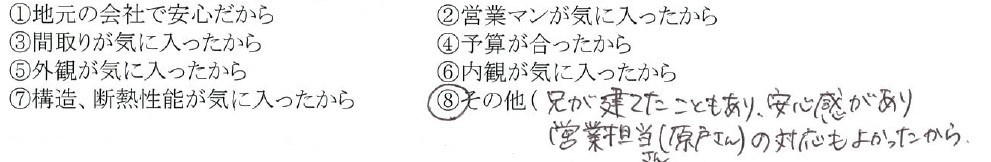 ①地元の会社で安心だから ②営業マンが気に入ったから
③間取りが気に入ったから ④予算が合ったから
⑤外観が気に入ったから ⑥内観が気に入ったから
⑦構造、断熱性能が気に入ったから ⑧その他(兄が建てたこともあり、安心感があり
営業担当さん(原戸さん)の対応もよかったから.